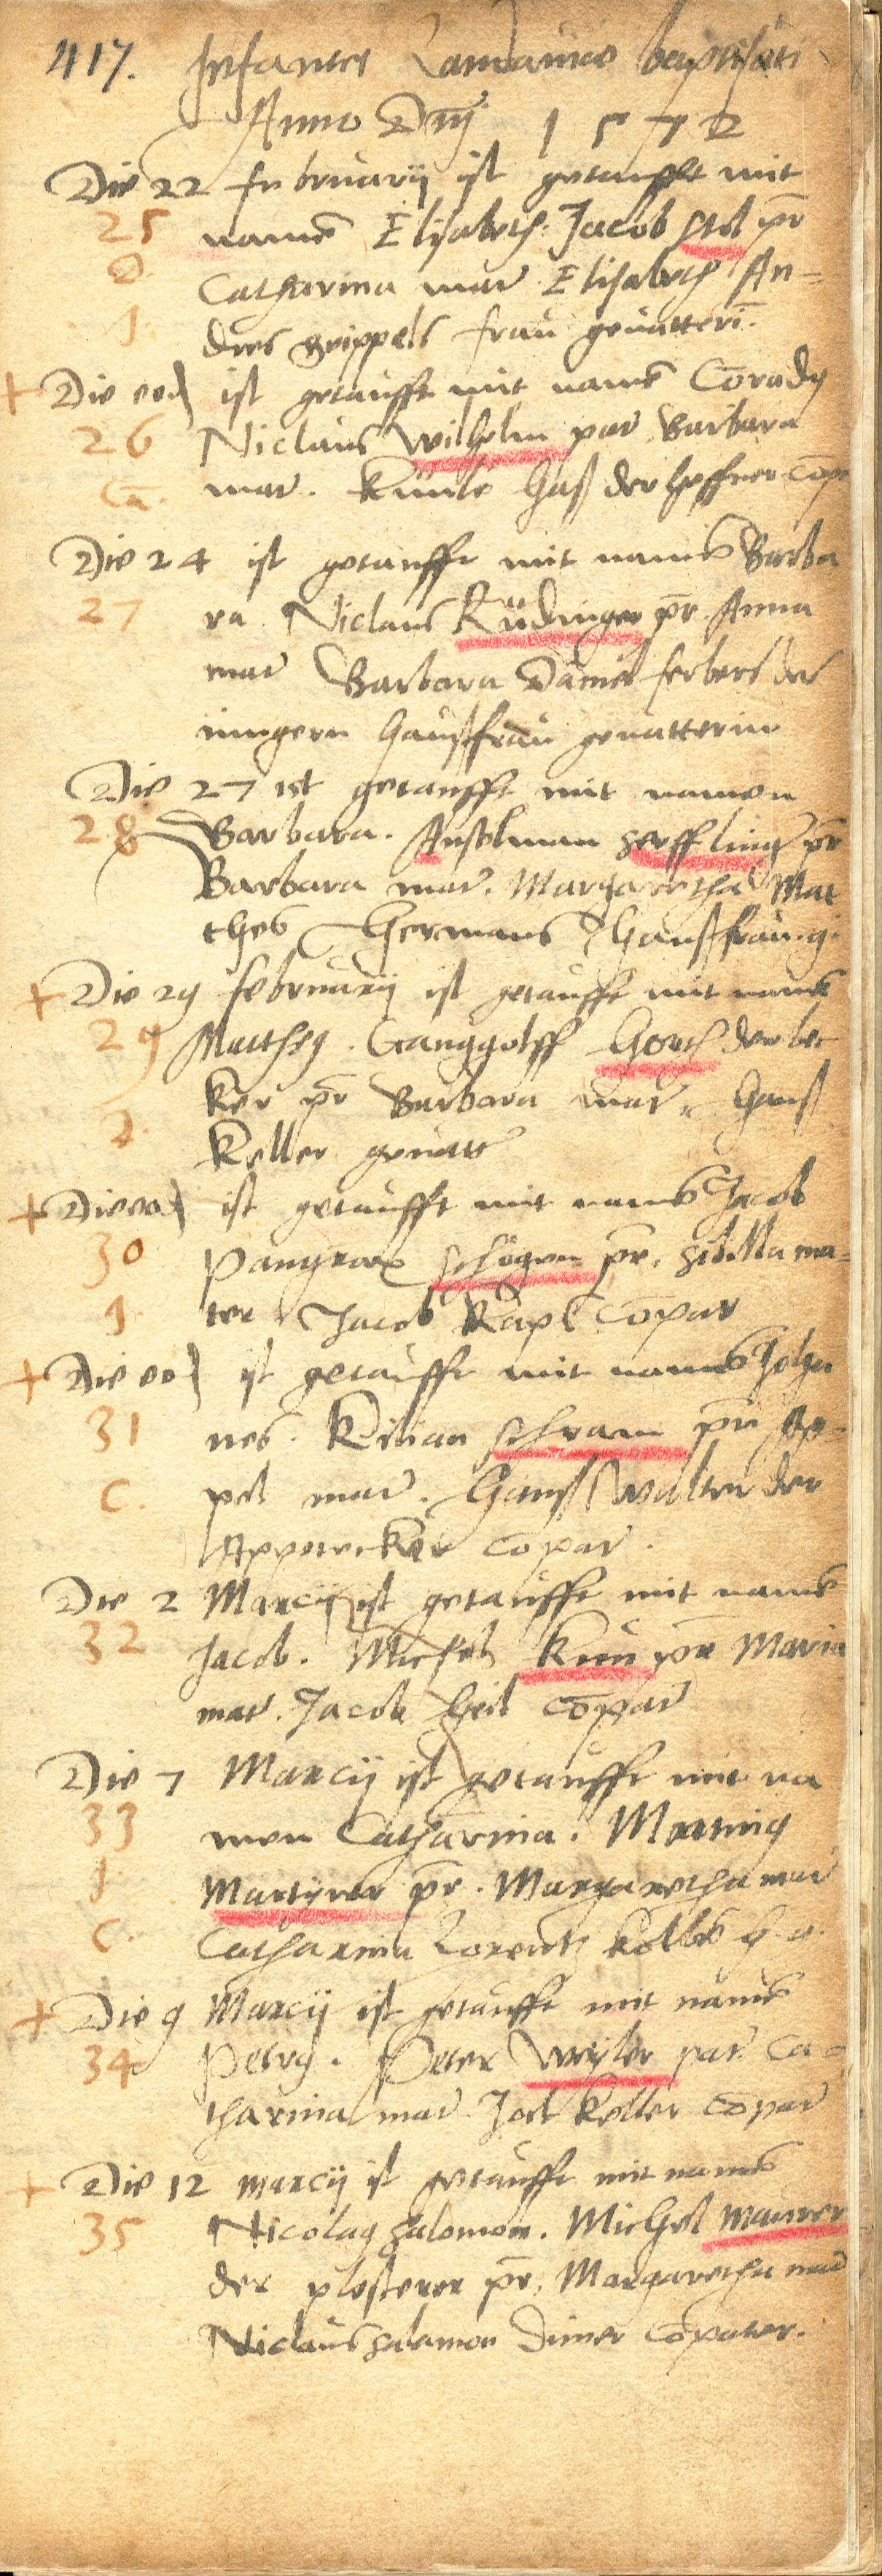 417. Infantes baptisati
Anno Dnj 1572
Die 22 februarij ist getaufft mit
25 namē Elisabeth. Jacob stol pr̄
Catharina mar Elisabeth An-
1. dres frau geuatterī.
+ Die eod ist getaufft mit namē Corady
26 Niclaus Wilhelm par Barbara
mar. Kuntz Haß der hoffner cōp
Die 24 ist getaufft mit namē Barba
27 ra. Niclaus Rüdinger pr̄. Anna
mar Barbara Daniel ferbers der
iungern haußfrau geuatterin
Die 27 ist getaufft mit namen
28 Barbara. Anselman pr̄
Barbara mar. Margaretha Mat
thes Hermans Haußfrau. g.
+ Die 29 februarij ist getaufft mit namē
29 Matthej. Ganggolff Horth der bec
ker pr̄ Barbara mar. Hanß
Keller geuatt
+ Die eod ist getaufft mit namē Jacob
30 Pangratz pr̄. sibilla ma-
1. ter. Jacob Kapl Copar
+ Die eod ist getaufft mit namē Joha
31 nes. Kilian schram pr̄ Ap-
C. pel mar. Hanß Walter der
Appotecker Copar.
Die 2 Marcij ist getaufft mit namē
32 Jacob. Michel Kun pr̄ Maria
mar. Jacob Heil Copar
Die 7 Marcij ist getaufft mit na
33 men Catharina. Martinj
1 Martyrer pr̄. Margaretha mar
C. Catharina Lorentz Kolbē h. g.
+ Die 9 Marcij ist getaufft mit namē
34 Petrg. Peter Weyler par. Ca-
tharina mar Jost Keller Copar
+ Die 12 marcij ist getaufft mit namē
35 Nicolag salomon. Michel Maurer
der plesterer pr̄. Margaretha mar
Niclaus salamon Copater.